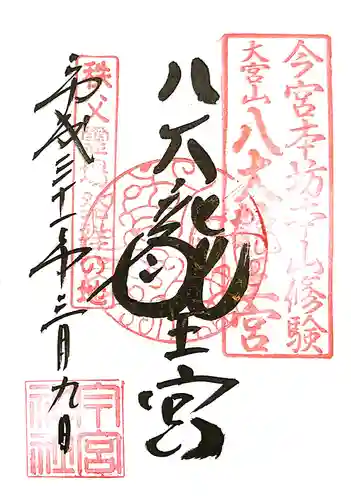 今宮坊本山修験
大宮山
八大龍王宮
八大龍王宮
秩父霊場発祥の地
平成三十一年三月九日
今宮神社